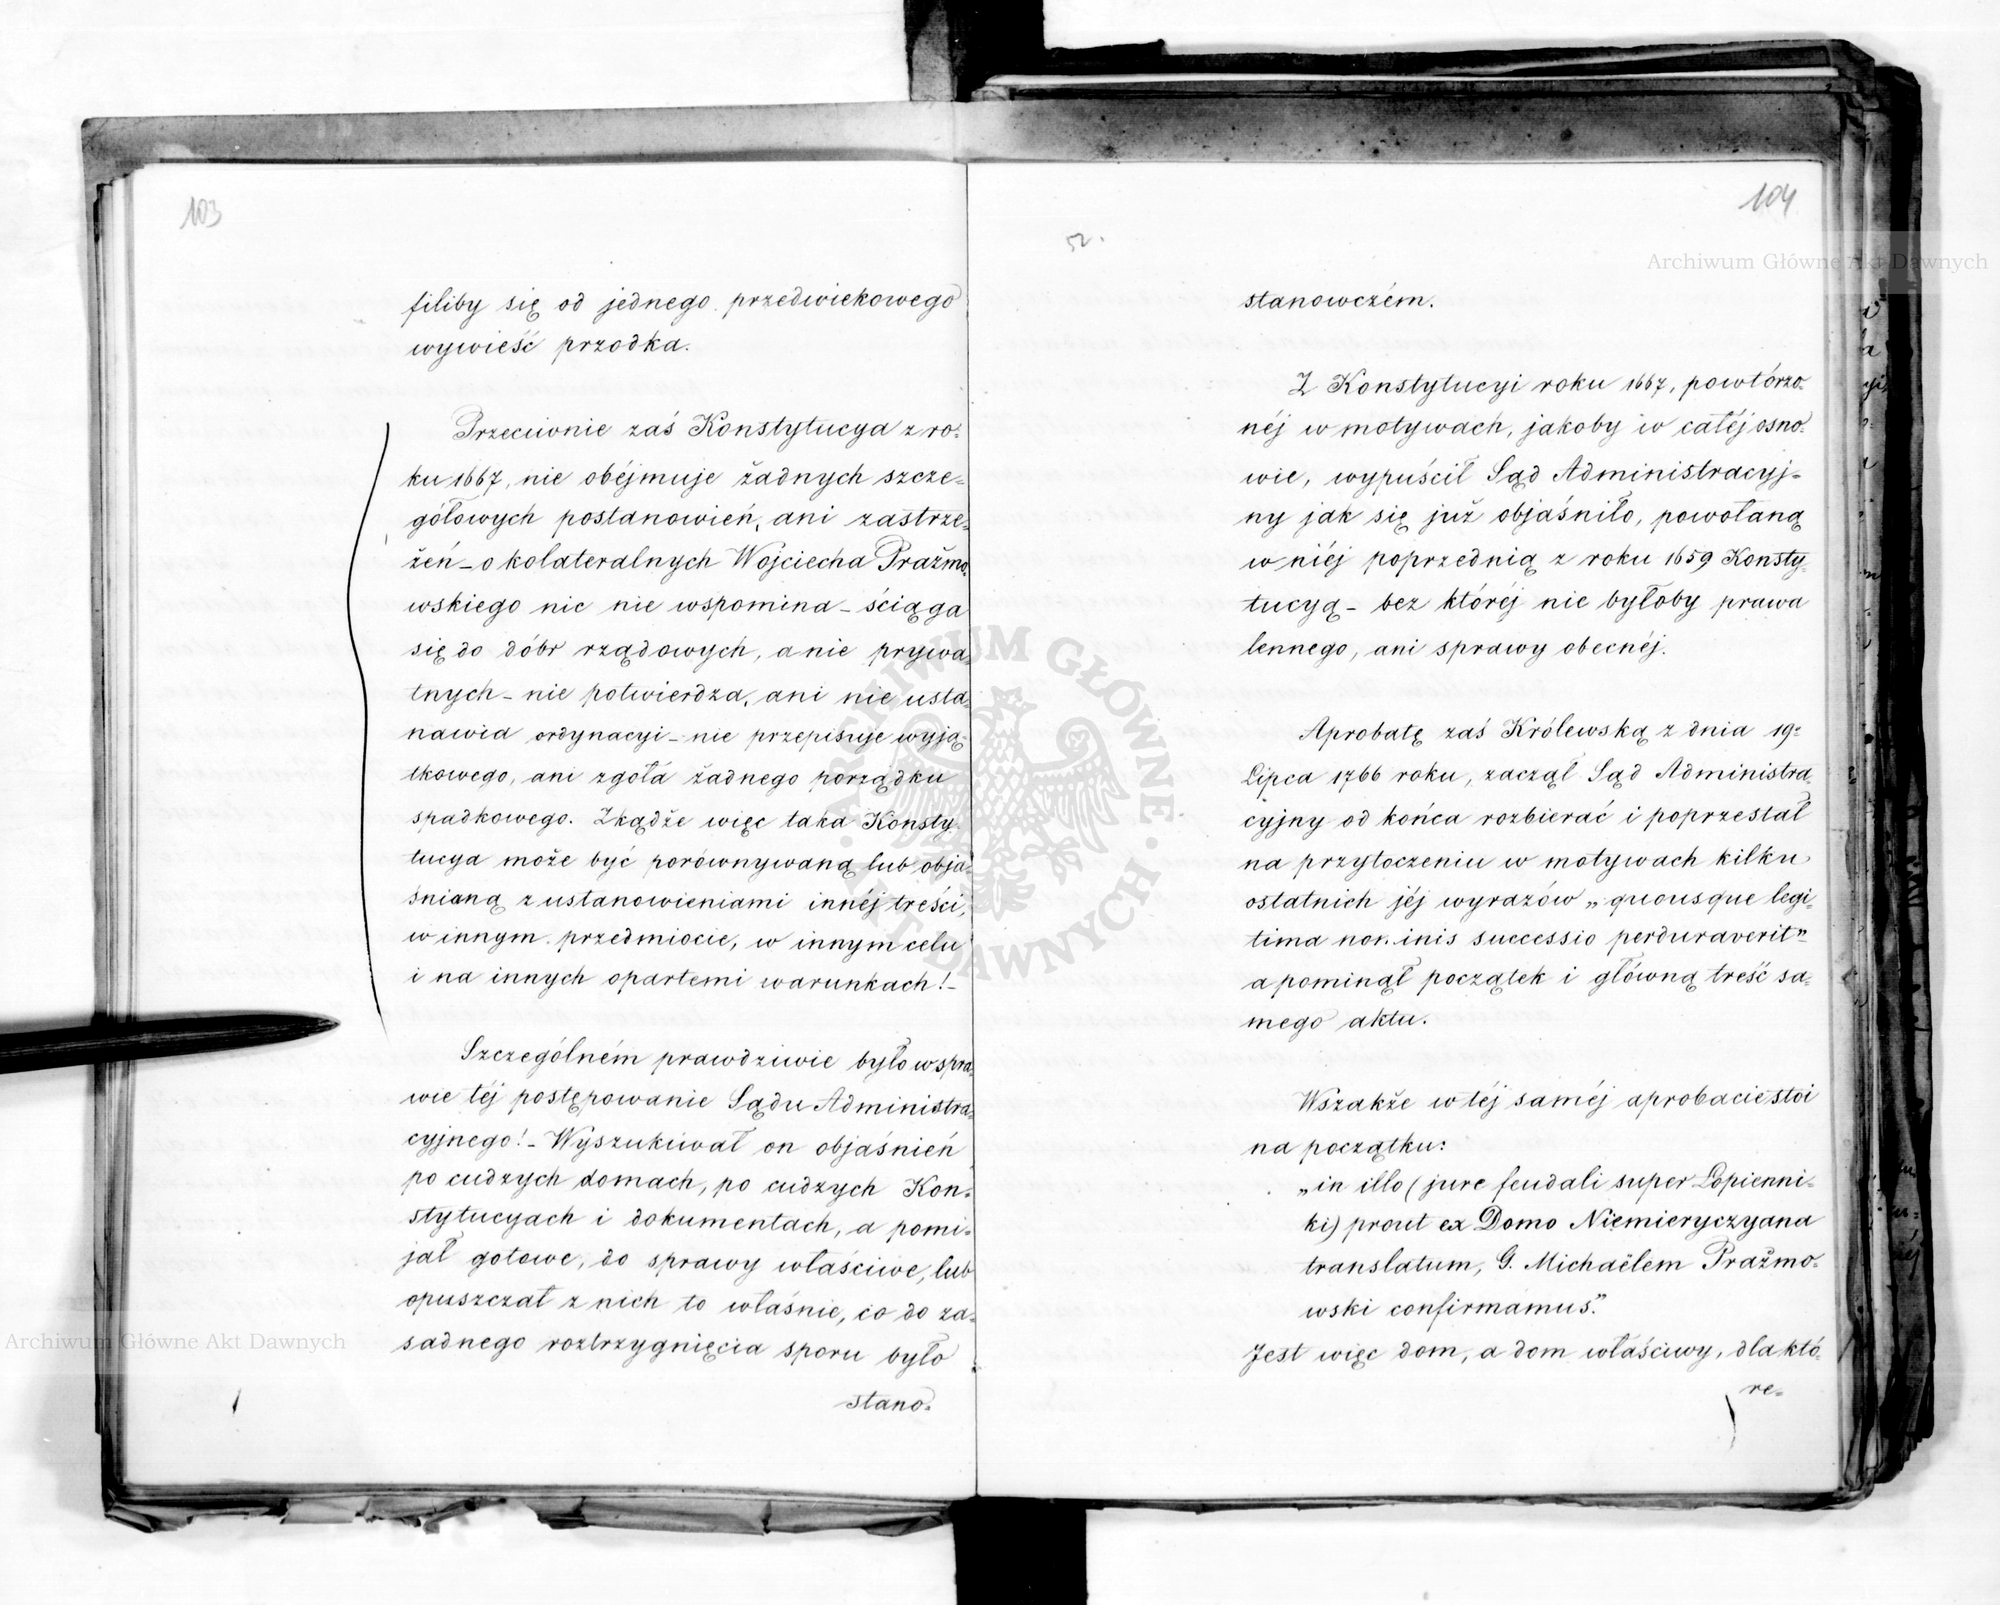 103
filiby się od jednego przedwiekowego
wywieść przodka.
Przeciwnie zaś Konstytucya z ro=
ku 1667, nie obéjmuje żadnych szcze=
gółowych postanowień, ani zastrze=
żeń – o kolateralnych Wojciecha Prażmo=
wskiego nic nie wspomina – ściąga
się do dóbr rządowych, a nie prywa=
tnych – nie potwierdza, ani nie usta=
nawia ordynacyi – nie przepisuje wyją=
tkowego, ani zgoła żadnego porządku
spadkowego. Zkądże więc taka Konsty=
tucya może być porównywaną lub obja=
śnianą z ustanowieniami innéj treści,
w innym przedmiocie, w innym celu
i na innych opartemi warunkach! –
Szczególném prawdziwie było w spra=
wie téj postępowanie Sądu Administra=
cyjnego! – Wyszukiwał on objaśnień
po cudzych domach, po cudzych Kon=
stytucyach i dokumentach, a pomi=
jał gotowe, do sprawy właściwe, lub
opuszczał z nich to właśnie, co do za=
sadnego roztrzygnięcia sporu było
stano=
104
52.
stanowczém.
Z Konstytucyi roku 1667, powtórzo=
néj w motywach, jakoby w całéj osno=
wie, wypuścił Sąd Administracyj=
ny jak się już objaśniło, powołaną
w niéj poprzednią z roku 1659 Konsty=
tucyą – bez któréj nie byłoby prawa
lennego, ani sprawy obecnéj.
Aprobatę zaś Królewską z dnia 19=
Lipca 1766 roku, zaczął Sąd Administra=
cyjny od końca rozbierać i poprzestał
na przytoczeniu w motywach kilku
ostatnich jéj wyrazów „quousque legi=
tima nominis successio perduraverit”
a pominął początek i główną treść sa=
mego aktu.
Wszakże w téj saméj aprobacie stoi
na początku:
„in illo (jure feudali super Łopienni=
ki) prout ex Domo Niemieryczyana
translatum, G. Michaëlem Prażmo=
wski confirmamus.”
Jest więc dom, a dom właściwy, dla któ=
re=
Archiwum Główne Akt Dawnych
Archiwum Główne Akt Dawnych
ARCHIWUM GŁÓWNE AKT DAWNYCH